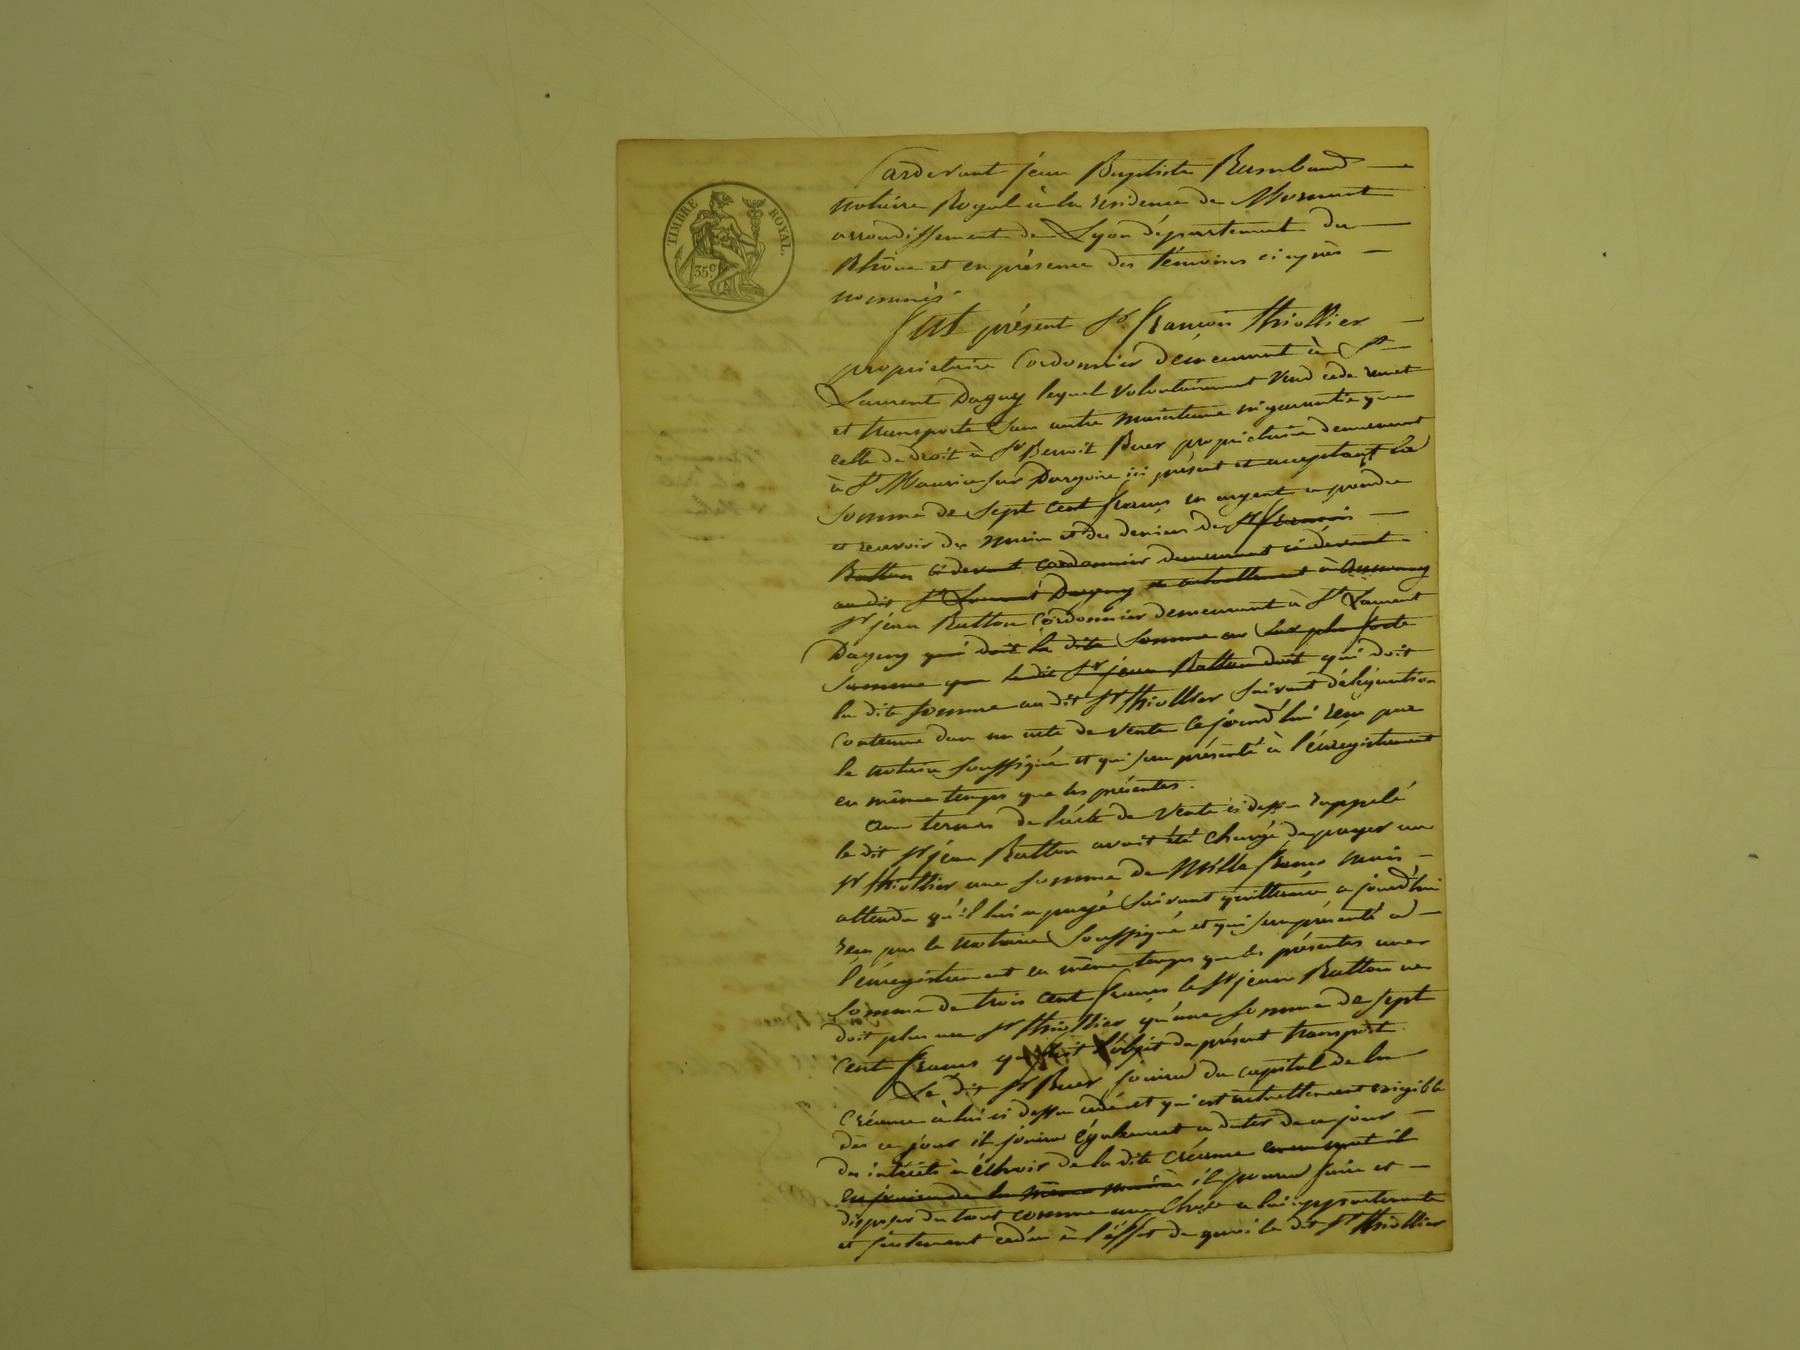 TIMBRE ROYAL.
35c
Pardevant jean Baptiste Rambaud
notaire Royal à la residence de Mornant
arrondissement de Lyon département du
Rhône et en présence des témoins ci après
nommés
fut présent Sr françois thiollier
propriétaire Cordonnier demeurant à St
Laurent Dagny lequel volontairement vend cède remet
et transporte sans autre maintenue ni garantie que
celle de droit à Sr Benoit Buer propriétaire demeurant
à St Maurice sur Dargoire ici présent et acceptant la
somme de sept cent francs en argent a prendre
et recevoir des mains et des deniers de Sr francois
Batton ci devant cordonnier demeurant ci devant
au dit St Laurent Dagny et actuellement à Annonay
Sr jean Batton Cordonnier demeurant à St Laurent
Dagny qui doit la dite somme ou sur plus forte
somme que le dit Sr jean Batton doit qui doit
la dite somme au dit Sr thiollier suivant délégation
contenue dans un acte de vente ce jourd'hui reçu par
le notaire soussigné et qui sera présenté à l'enregistrement
en même temps que les présentes.
aux termes de l'acte de vente ci dessus rappelé
le dit Sr jean Batton avoit été chargé de payer au
Sr thiollier une somme de Mille francs mais
attendu qu'il lui a payé suivant quittance a jourd'hui
reçu par le notaire soussigné et qui sera présenté a
l'enregistrement en même temps que les présentes une
somme de trois cent francs le Sr jean Batton ne
doit plus au Sr thiollier qu'une somme de sept
cent francs qui fait l'objet du présent transport.
Le dit Sr Buer jouira du capital de la
créance à lui ci dessus cédée et qui est actuellement exigible
dès ce jour il jouira également a dater de ce jour
des intérêts à échoir de la dite créance
en jouira de la même manière il pourra faire et
disposer du tout comme une chose a lui appartenante
et justement cédée à l'effet de quoi le dit Sr thiollier